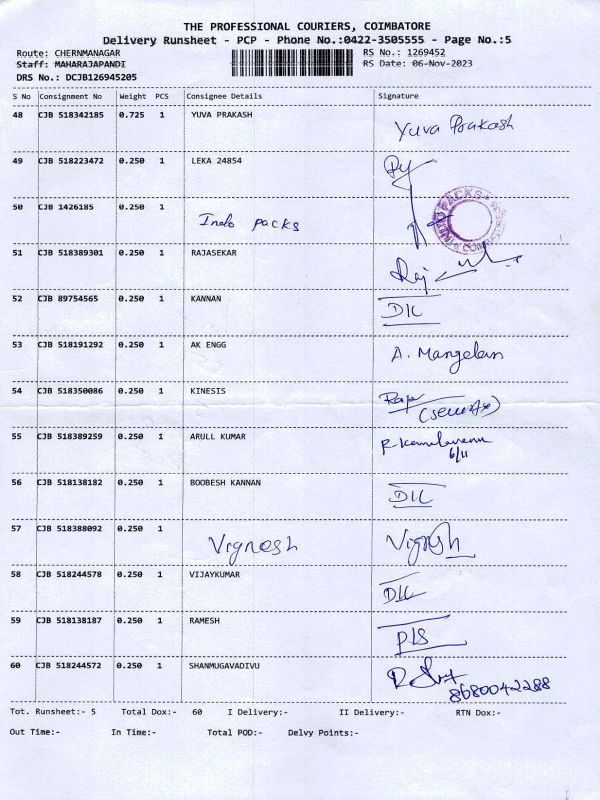 THE PROFESSIONAL COURIERS, COIMBATORE
Delivery Runsheet - PCP - Phone No.:0422-3505555 - Page No.:5
Route: CHERNMANAGAR RS No.: 1269452
Staff: MAHARAJAPANDI RS Date: 06-Nov-2023
DRS No.: DCJB126945205
S No Consignment No Weight PCS Consignee Details Signature
48 CJB 518342185 0.725 1 YUVA PRAKASH Yuva Prakash
49 CJB 518223472 0.250 1 LEKA 24854
50 CJB 1426185 0.250 1 Indo packs
51 CJB 518389301 0.250 1 RAJASEKAR Raj
52 CJB 89754565 0.250 1 KANNAN DIL
53 CJB 518191292 0.250 1 AK ENGG A. Mangelam
54 CJB 518350086 0.250 1 KINESIS Raja (security)
55 CJB 518389259 0.250 1 ARULL KUMAR 6/11
56 CJB 518138182 0.250 1 BOOBESH KANNAN DIL
57 CJB 518388092 0.250 1 Vignesh Vignesh
58 CJB 518244578 0.250 1 VIJAYKUMAR DIL
59 CJB 518138187 0.250 1 RAMESH PLS
60 CJB 518244572 0.250 1 SHANMUGAVADIVU 8680042288
Tot. Runsheet:- 5 Total Dox:- 60 I Delivery:- II Delivery:- RTN Dox:-
Out Time:- In Time:- Total POD:- Delvy Points:-